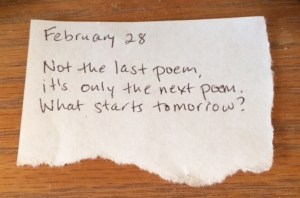 February 28
Not the last poem,
it's only the next poem.
What starts tomorrow?